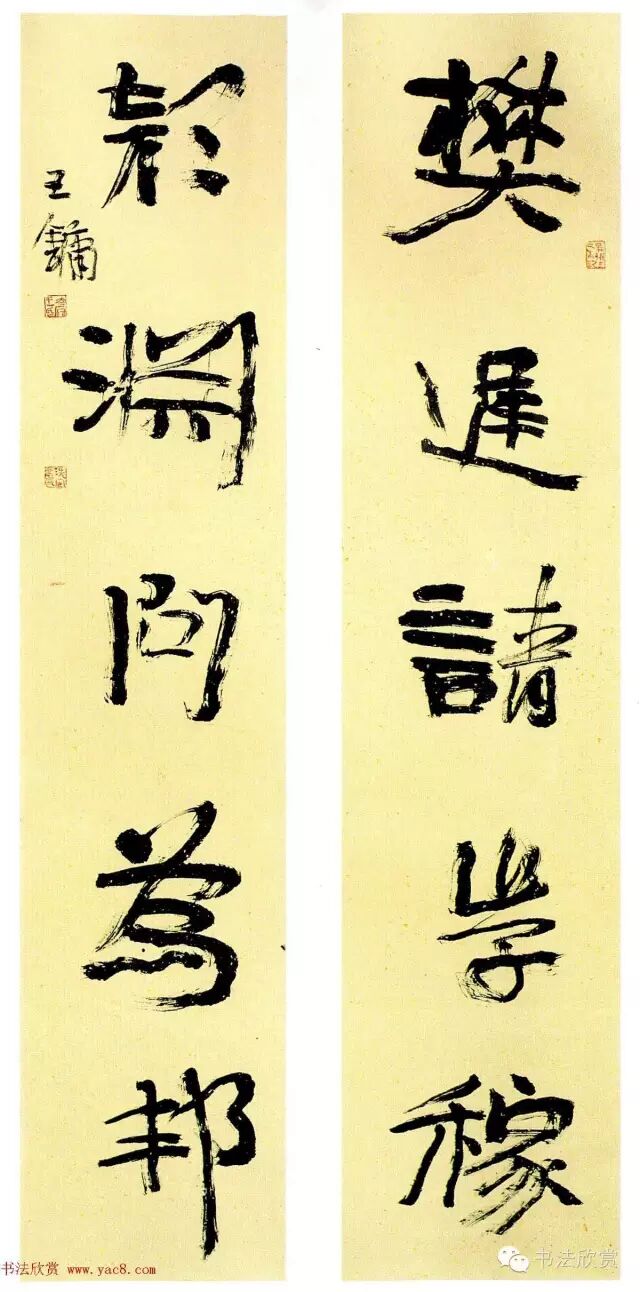 樊遲請學稼
顔淵問為邦
王鏞
书法欣赏 www.yac8.com
书法欣赏